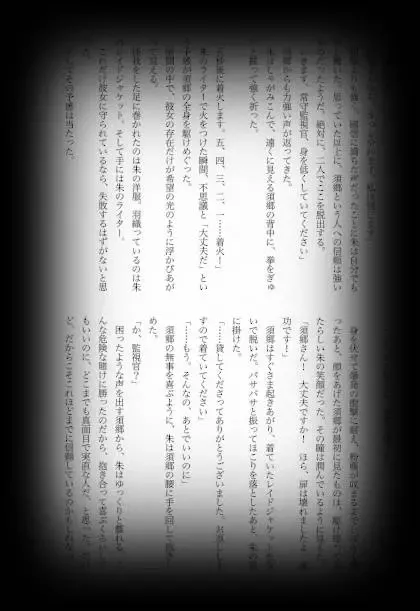 声だったことに朱は自分でも
驚いた。思っていた以上に、須郷という人への信頼は強い
のだったようだ。絶対に、二人でここを脱出する。
きます。常守監視官、身を低くしていてください」
須郷からも力強い声が返ってきた。
朱はしゃがみこんで、遠くに見える須郷の背中に、拳をぎゅ
と握って強く祈った。
秒後に着火します。五、四、三、二、一……着火!
朱のライターで火をつけた瞬間、不思議と「大丈夫だ」とい
予感が須郷の全身を駆けめぐった。
暗闇の中で、彼女の存在だけが希望の光のように浮かびあが
て見える。
怪我をした足に巻かれたのは朱の洋服。羽織っているのは朱
レイドジャケット。そして手には朱のライター。
これだけ彼女に守られているなら、失敗するはずがないと思
た。
その予感は当たった。
身を伏せて爆発の衝撃に耐え、粉塵が収まるまで
ったあと、顔をあげた須郷が最初に見たものは、駆け寄
たらしい朱の笑顔だった。その瞳は潤んでいるように
「須郷さん! 大丈夫ですか! ほら、扉は壊れましたよ
功です!」
須郷はすぐさま起きあがり、着ていたレイドジャケットを
いで脱いだ。バサバサと振ってほこりを落としたあと、朱の
に掛けた。
「……貸してくださってありがとうございました。お返し
すので着ていてください」
「……もう。そんなの、あとでいいのに」
須郷の無事を喜ぶように、朱は須郷の腰に手を回して抱き
めた。
「か、監視官?」
困ったような声を出す須郷から、朱はゆっくりと離れる。
んな危険な賭けに勝ったのだから、抱き合って喜ぶくらい
もいいのに、どこまでも真面目で実直な人だ、と思った。
ど、だからこそこれほどまでに信頼しているのかもしれな